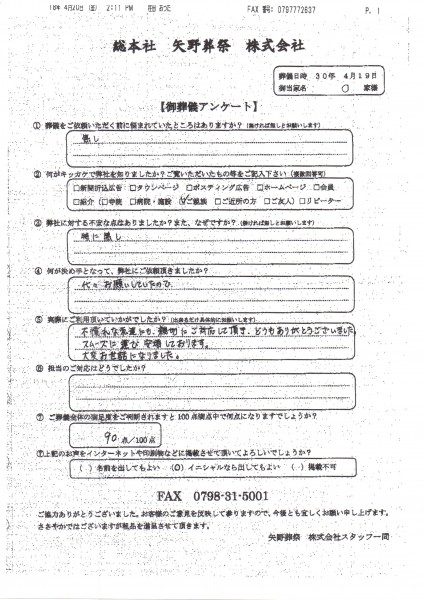 18年 4月20日(金) 2:11 PM
FAX 番号: 0797772637
P. 1
総本社 矢野葬祭 株式会社
葬儀日時 30年 4月19日
御当家名 〇 家様
【御葬儀アンケート】
① 葬儀をご依頼いただく前に悩まれていたところはありますか?(無ければ無しとお願いします)
無し
② 何がキッカケで弊社を知りましたか?ご覧いただいたもの等をご記入下さい(複数回答可)
□新聞折込広告 □タウンページ □ポスティング広告 □ホームページ □会員
□紹介(□寺院 □病院・施設 ☑ご親族 □ご近所の方 □ご友人)□リピーター
③ 弊社に対する不安な点はありましたか?また、なぜですか?(無ければ無しとお願いします)
特に無し
④ 何が決め手となって、弊社にご依頼頂きましたか?
代々お願いしていたので
⑤ 実際にご利用頂いていかがでしたか?(出来るだけ具体的にお願いします)
不慣れな家族にも、親切にご対応して頂き、どうもありがとうございました
スムーズに運び安堵しております。
大変お世話になりました。
⑥ 担当のご対応はどうでしたか?
⑦ ご葬儀全体の満足度をご判断されますと100点満点中で何点になりますでしょうか?
90 点/100点
⑦上記のお声をインターネットや印刷物などに掲載させて頂いてよろしいでしょうか?
( )名前を出してもよい (〇)イニシャルなら出してもよい ( )掲載不可
FAX 0798-31-5001
ご協力ありがとうございました。お客様のご意見を反映して参りますので、今後とも宜しくお願い申し上げます。
ささやかではございますが粗品を進呈させて頂きます。
矢野葬祭 株式会社スタッフ一同